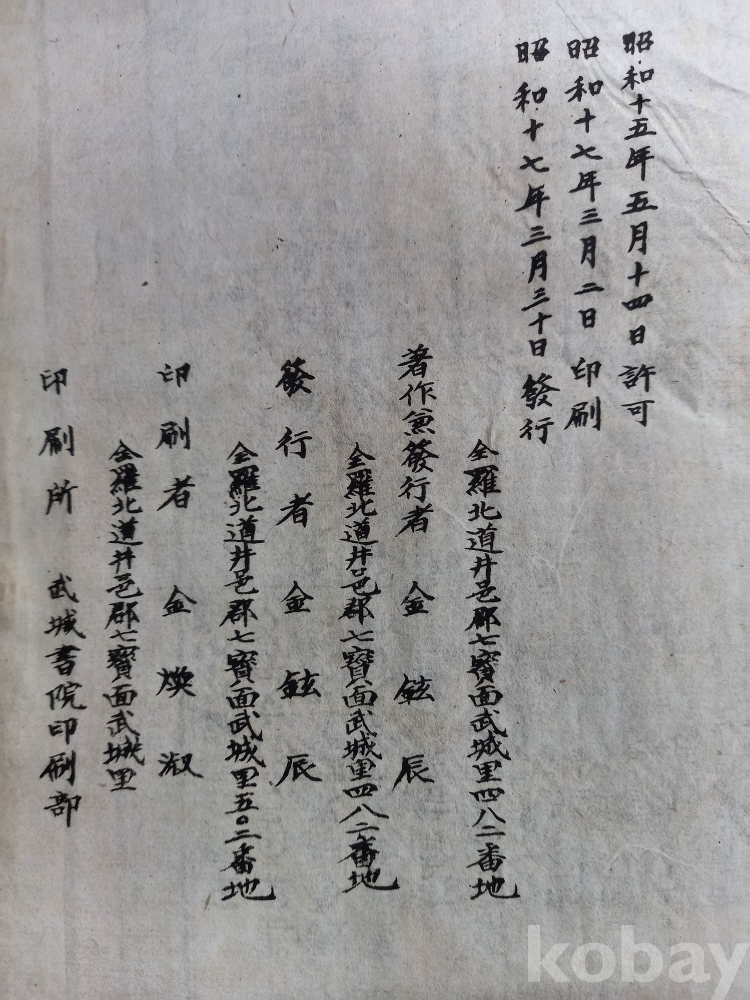 昭和十五年五月十四日許可
昭和十七年三月二日印刷
昭和十七年三月三十日發行
全羅北道井邑郡七寶面武城里四八二番地
著作兼發行者 金鉉辰
全羅北道井邑郡七寶面武城里四八二番地
發行者 金鉉辰
全羅北道井邑郡七寶面武城里五〇二番地
印刷者 金煥淑
全羅北道井邑郡七寶面武城里
印刷所 武城書院印刷部
kobay